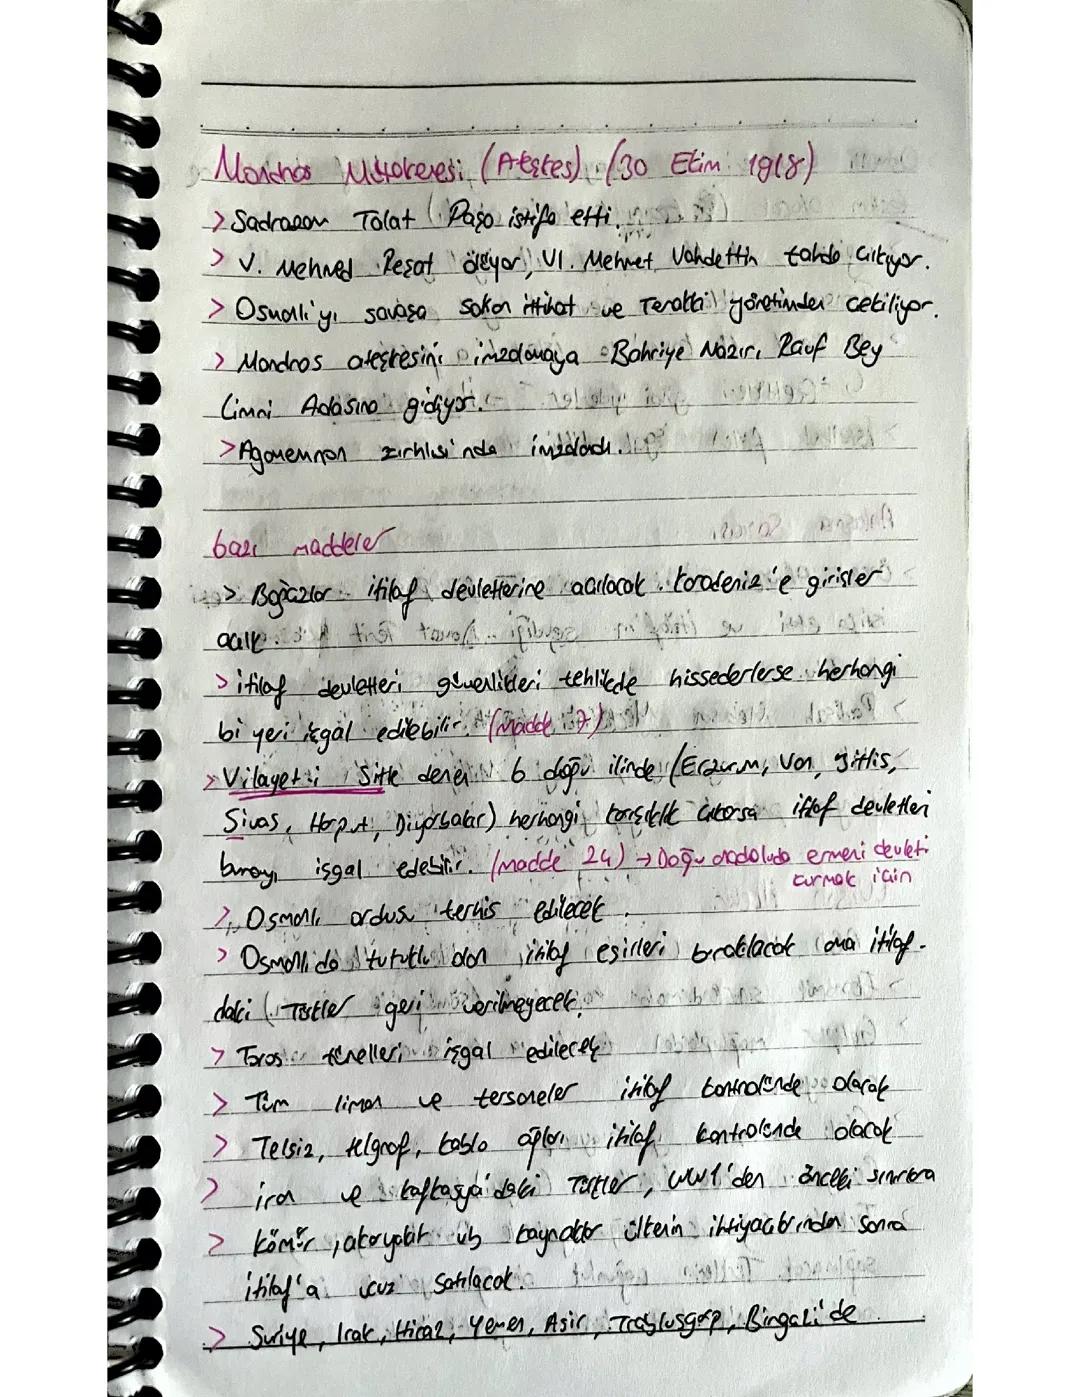 Mondros Mütarekesi (Ateşkes) (30 Ekim 1918)
> Sadrazam Talat Paşa istifa etti.
> V. Mehmed Reşat ölüyor, VI. Mehmet Vahdettin tahda çıkıyor.
> Osmanlı'yı savaşa sokan ittihat ve Terakki yönetimden çekiliyor.
> Mondros ateşkesini imzalamaya Bahriye Nazırı Rauf Bey
Limni Adasına gidiyor.
> Agamemnon zırhlısı'nda imzalandı.
bazı maddeler
> Boğazlar itilaf devletlerine açılacak. Karadeniz'e girişler
açık.
> itilaf devletleri güvenlikleri tehlikede hissederlerse herhangi
bi yeri işgal edilebilir. (Madde 7)
> Vilayet-i Sitte denen 6 doğu ilinde (Erzurum, Van, Bitlis,
Sivas, Harput, Diyarbakır) herhangi karışıklık çıkarsa itilaf devletleri
burayı işgal edebilir. (madde 24) → Doğu anadoluda ermeni devleti
kurmak için
> Osmanlı ordusu terhis edilecek.
> Osmanlıda tutuklu olan itilaf esirleri bırakılacak ama itilaf-
daki Türkler geri verilmeyecek.
> Toros tünelleri işgal edilecek
> Tüm liman ve tersaneler itilaf kontrolünde olacak
> Telsiz, telgraf, kablo ağları itilaf kontrolünde olacak
> iran ve kafkasya'daki Türkler, WW1'den önceki sınırlara
> Kömür, akaryakıt vb kaynaklar ülkenin ihtiyaçlarından sonra
itilaf'a ucuz satılacak.
> Suriye, Irak, Hicaz, Yemen, Asir, Trablusgarp, Bingazi'de